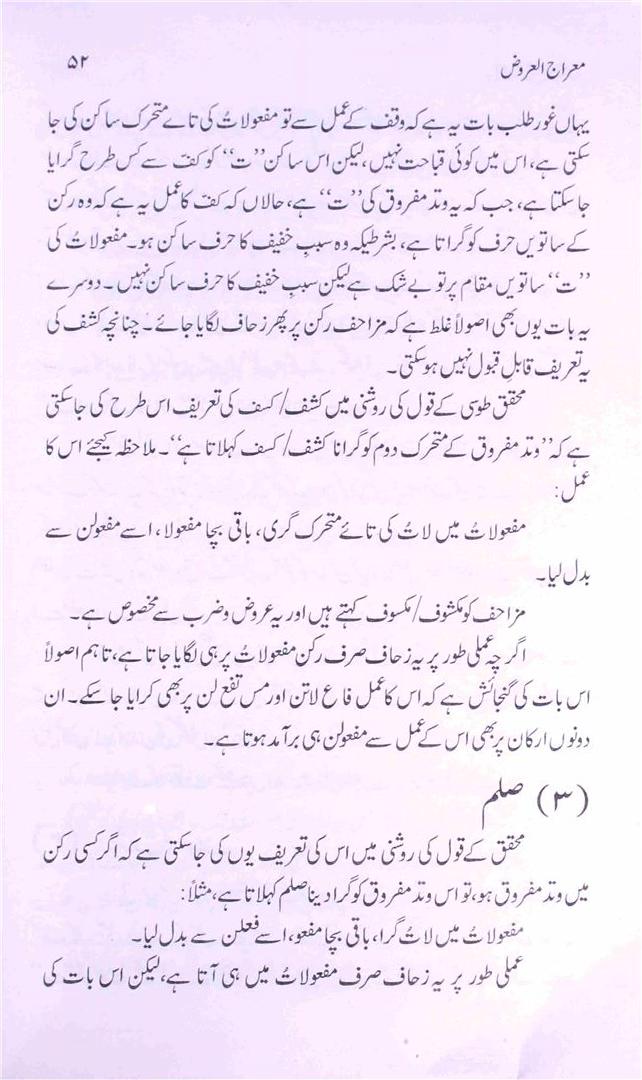 معراج العروض ۵۲
یہاں غور طلب بات یہ ہے کہ وقف کے عمل سے تو مفعولاتُ کی تائے متحرک ساکن کی جا
سکتی ہے، اس میں کوئی قباحت نہیں، لیکن اس ساکن ”ت“ کو کف سے کس طرح گرایا
جا سکتا ہے، جب کہ یہ وتد مفروق کی ”ت“ ہے، حالاں کہ کف کا عمل یہ ہے کہ وہ رکن
کے ساتویں حرف کو گراتا ہے، بشرطیکہ وہ سببِ خفیف کا حرف ساکن ہو۔ مفعولات کی
”ت“ ساتویں مقام پر تو بے شک ہے لیکن سببِ خفیف کا حرف ساکن نہیں۔ دوسرے
یہ بات یوں بھی اصولاً غلط ہے کہ مزاحف رکن پر پھر زحاف لگایا جائے۔ چنانچہ کشف کی
یہ تعریف قابلِ قبول نہیں ہو سکتی۔
محقق طوسی کے قول کی روشنی میں کشف/ کسف کی تعریف اس طرح کی جا سکتی
ہے کہ ”وتد مفروق کے متحرک دوم کو گرانا کشف/ کسف کہلاتا ہے“۔ ملاحظہ کیجئے اس کا
عمل:
مفعولاتُ میں لاتُ کی تائے متحرک گری، باقی بچا مفعولا، اسے مفعولن سے
بدل لیا۔
مزاحف کو مکشوف/ مکسوف کہتے ہیں اور یہ عروض و ضرب سے مخصوص ہے۔
اگرچہ عملی طور پر یہ زحاف صرف رکن مفعولاتُ پر ہی لگایا جاتا ہے، تاہم اصولاً
اس بات کی گنجائش ہے کہ اس کا عمل فاع لاتن اور مس تفع لن پر بھی کرایا جا سکے۔ ان
دونوں ارکان پر بھی اس کے عمل سے مفعولن ہی برآمد ہوتا ہے۔
(۳) صلم
محقق کے قول کی روشنی میں اس کی تعریف یوں کی جا سکتی ہے کہ اگر کسی رکن
میں وتد مفروق ہو، تو اس وتد مفروق کو گرا دینا صلم کہلاتا ہے، مثلاً:
مفعولاتُ میں لاتُ گرا، باقی بچا مفعو، اسے فعلن سے بدل لیا۔
عملی طور پر یہ زحاف صرف مفعولاتُ میں ہی آتا ہے، لیکن اس بات کی